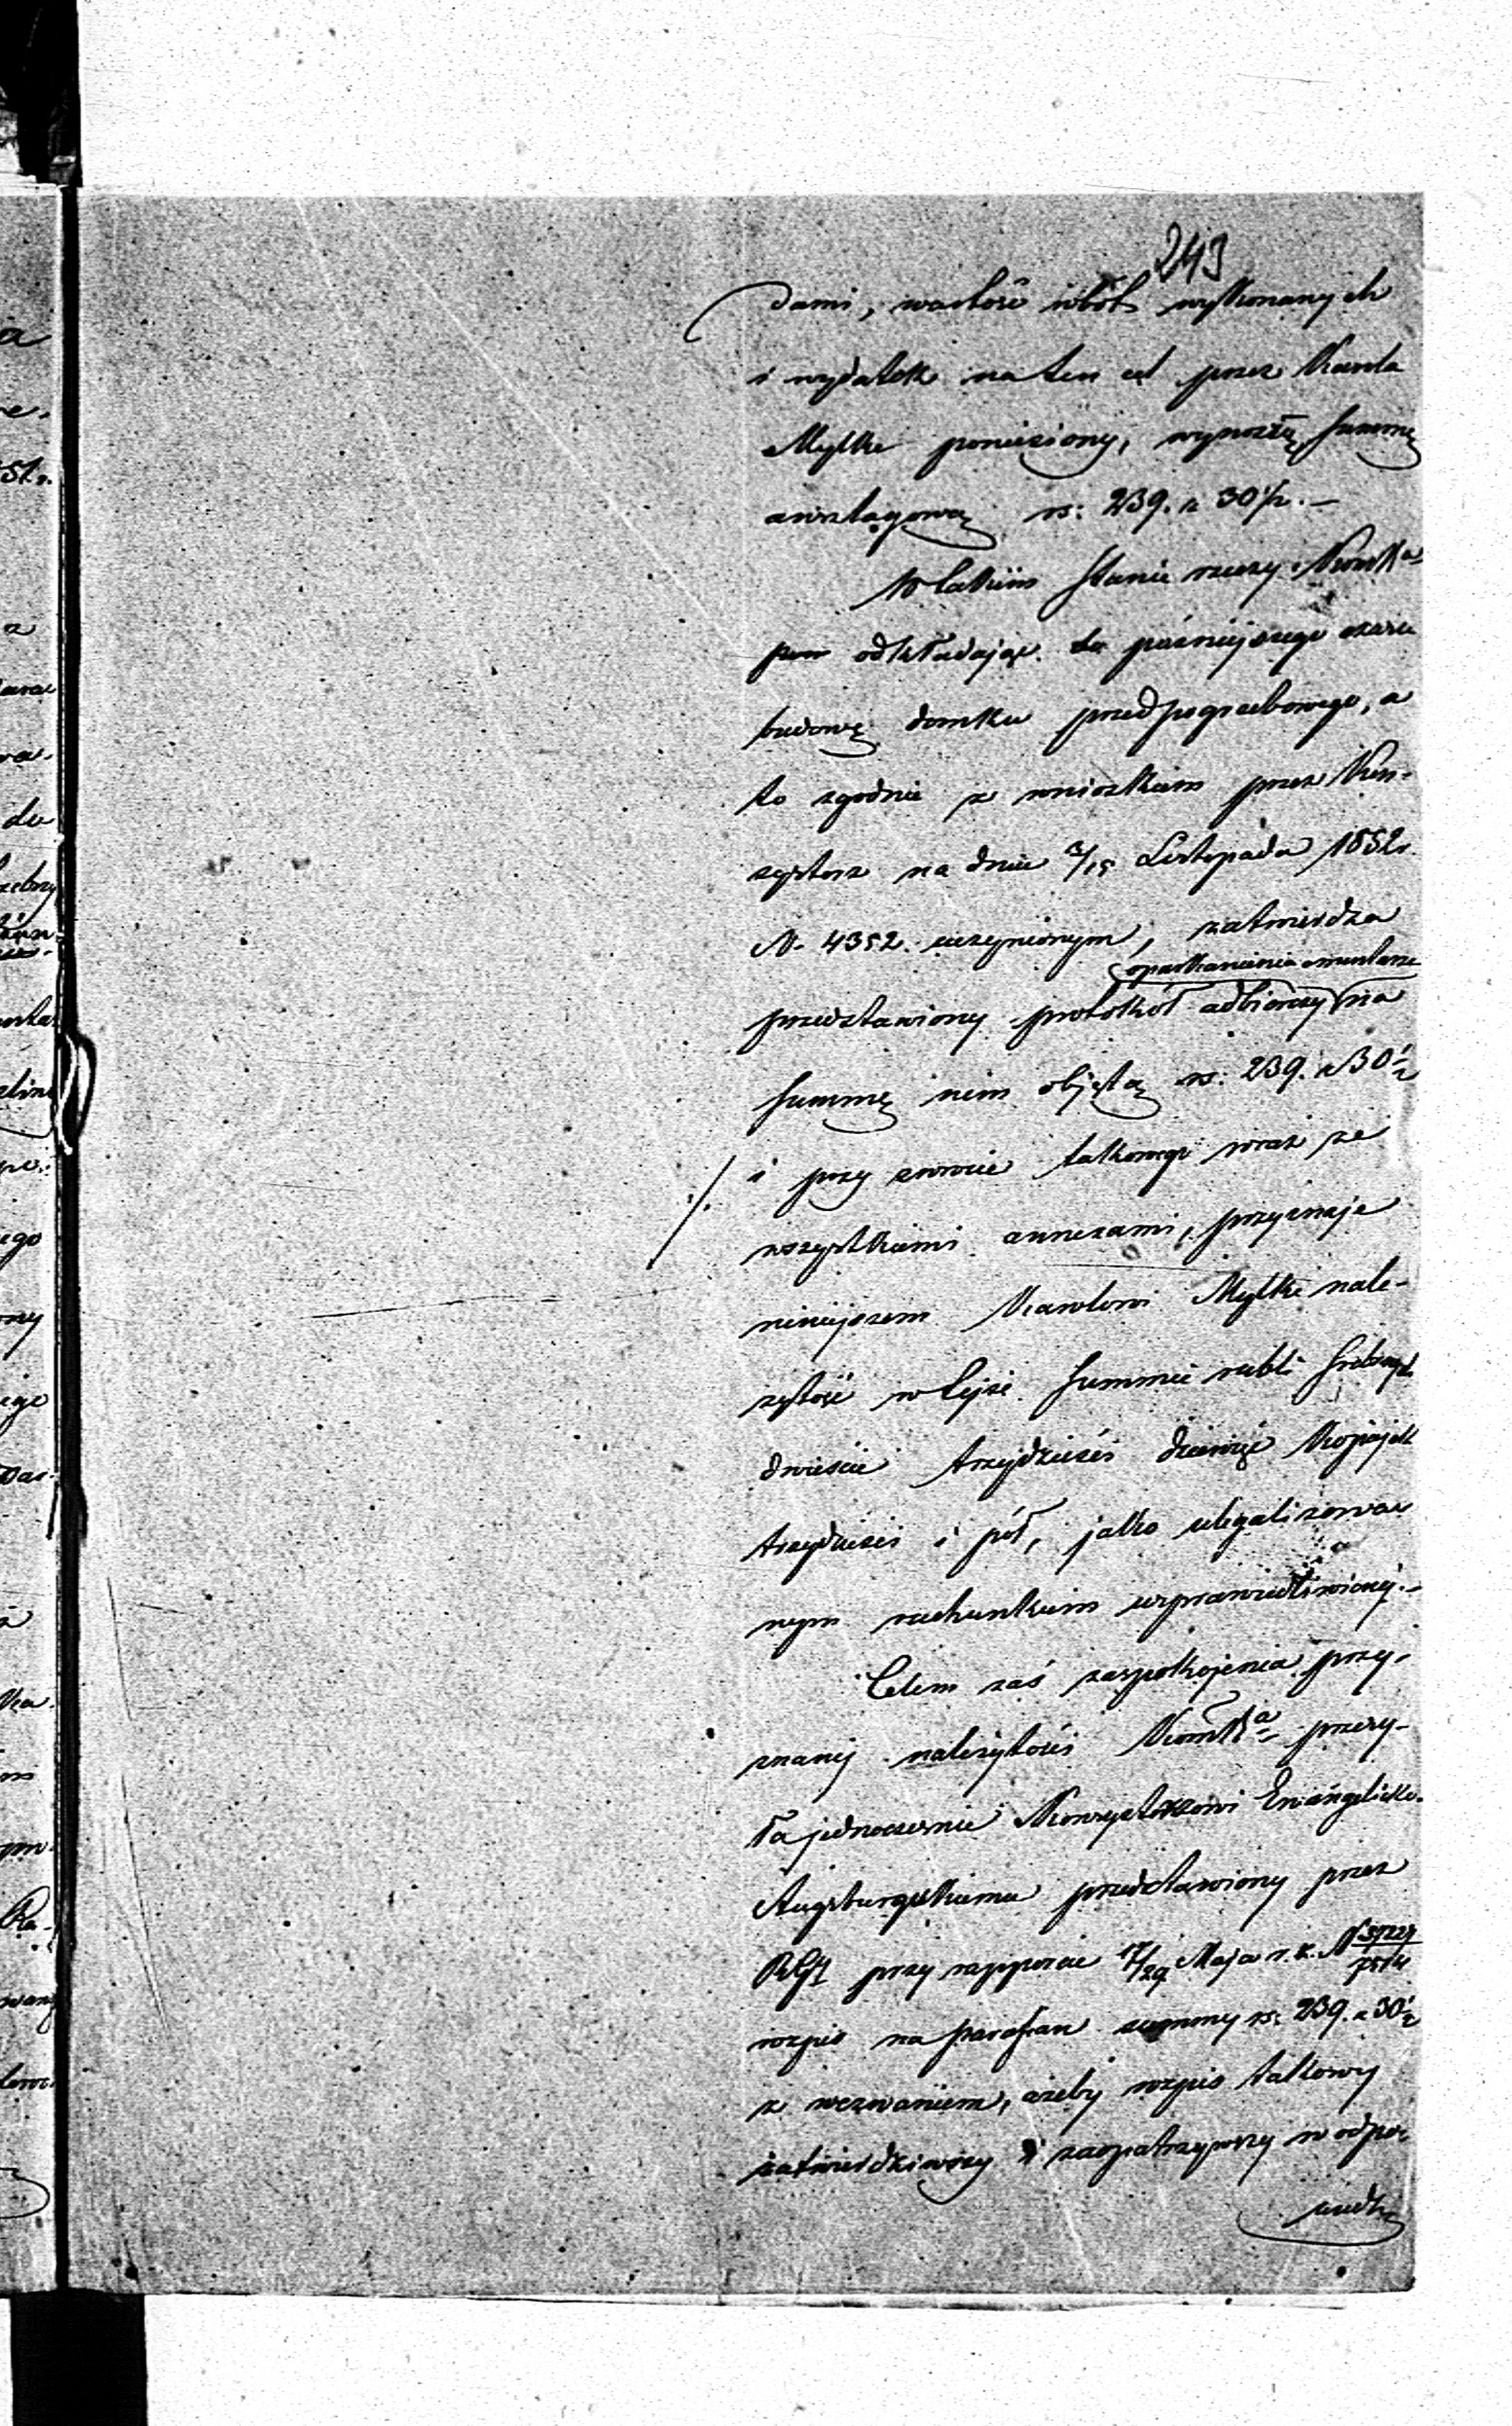 243
dami, wartość robót wykonanych
i wydatek na ten cel przez Karola
Mylke poniesiony, wynoszą summę
anszlagową rs: 239. k 30½. —
W takim stanie rzeczy Kom̃R̃a
odkładając do późniejszego czasu
budowę domku przedpogrzebowego, a
to zgodnie z wnioskiem przez Kon-
systorz na dniu 3/15 Listopada 1852 r.
N. 4352. uczynionym, zatwierdza
oparkanienia cmentarza
przedstawiony protokół odbiorczy na
summę nim objętą rs: 239. k 30½
i przy zwrocie takowego wraz ze
wszystkiemi annexami, przyznaje
niniejszem Karolowi Mylke nale-
żytość w tejże summie rubli srebrnych
dwieście trzydzieści dziewięć kopiejek
trzydzieści i pół, jako ulegalizowa-
nym rachunkiem usprawiedliwionej.—
Celem zaś zaspokojenia przy-
znanej należytości Kom̃R̃a przesy-
ła jednocześnie Konsystorzowi Ewangelicko-
Augsburgskiemu przedstawiony przez
RGą przy rapporcie 17/29 Maja r. z. N
rozpis na parafian summy rs: 239. k 30½
z wezwaniem, ażeby rozpis takowy
zatwierdziwszy i zaopatrzywszy w odpo-
wiedn